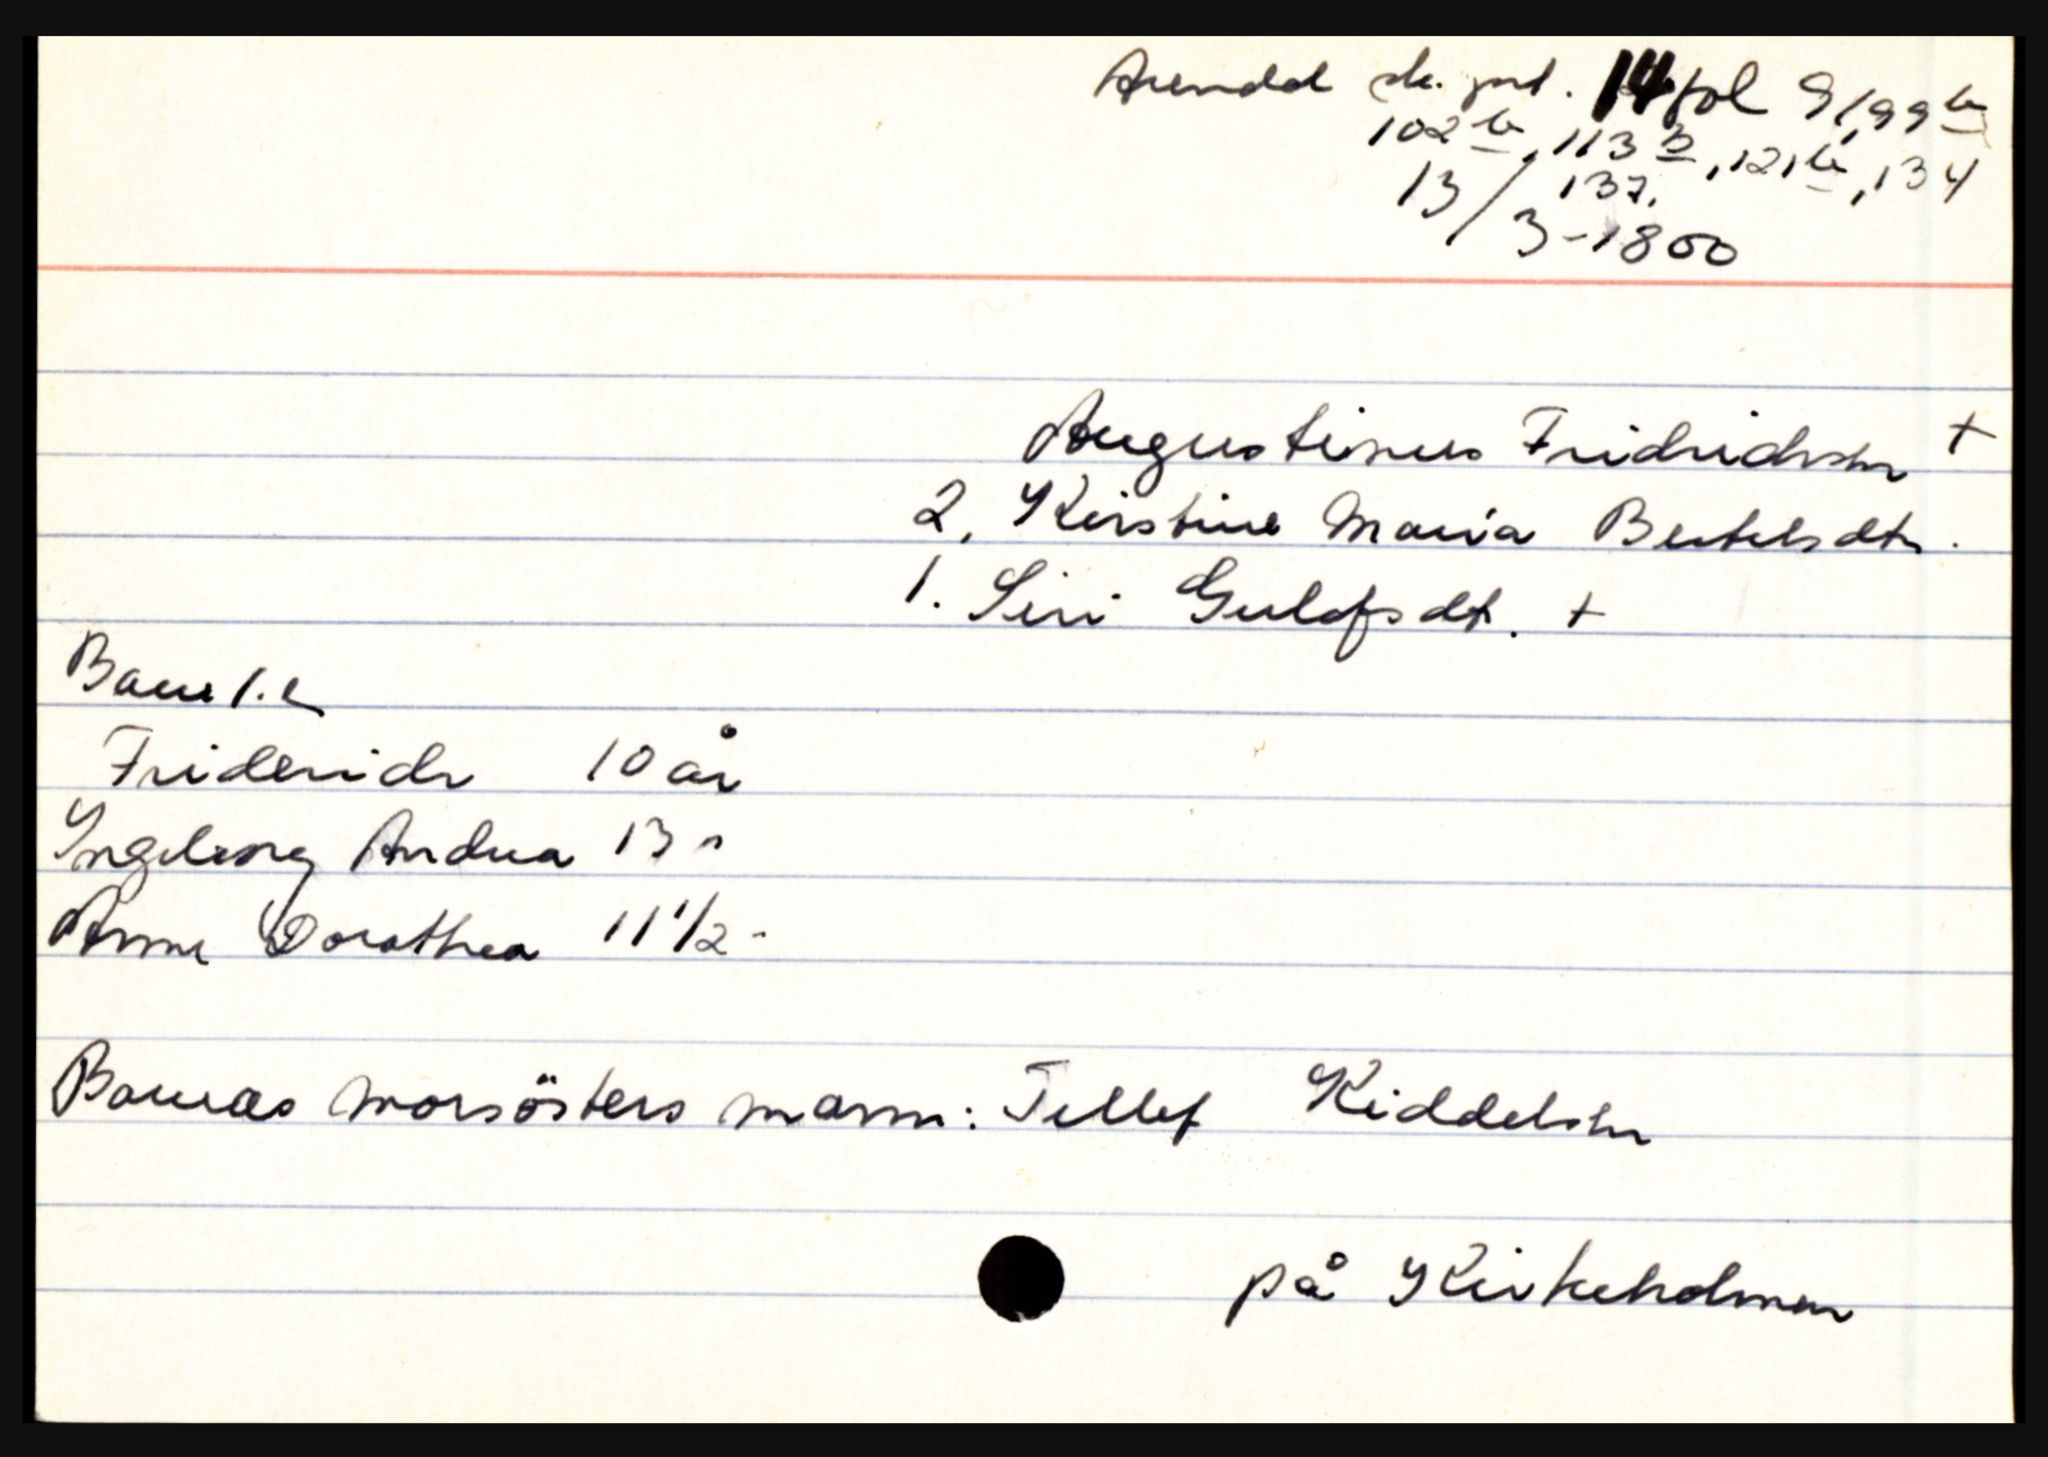 Arendal sk. prot. 14 fol 91, 99 b
102 b, 113 b, 121 b, 134
137.
13/3-1800
Augustinus Fridrichsen +
2. Kirstine Maria Bertelsdtr.
1. Siri Gulofsdt. +
Barn 1. e
Friderich 10 år
Ingeborg Andrea 13 "
Anne Dorothea 11 1/2 -
Barnas morsösters mann: Tellef Kiddelsen
på Kirkeholmen